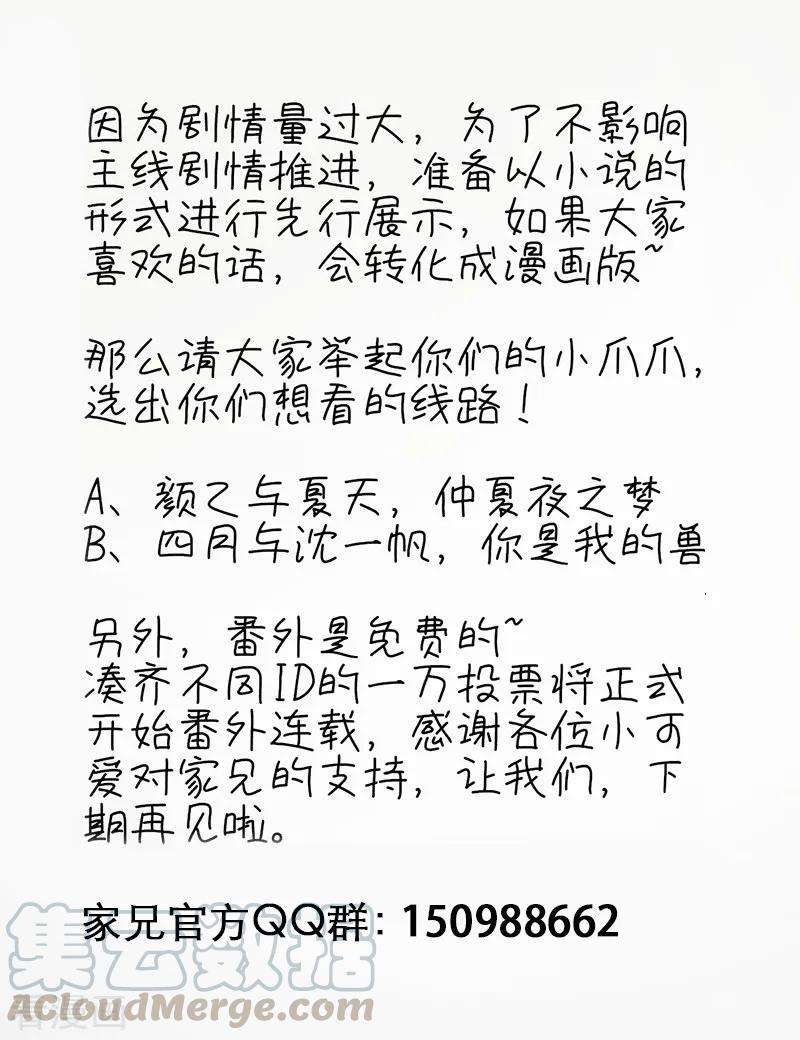 因为剧情量过大，为了不影响
主线剧情推进，准备以小说的
形式进行先行展示，如果大家
喜欢的话，会转化成漫画版~
那么请大家举起你们的小爪爪，
选出你们想看的线路！
A、颜乙与夏天，仲夏夜之梦
B、四月与沈一帆，你是我的兽
另外，番外是免费的~
凑齐不同ID的一万投票将正式
开始番外连载，感谢各位小可
爱对家兄的支持，让我们，下
期再见啦。
家兄官方QQ群：150988662
集云数据
ACloudMerge.com